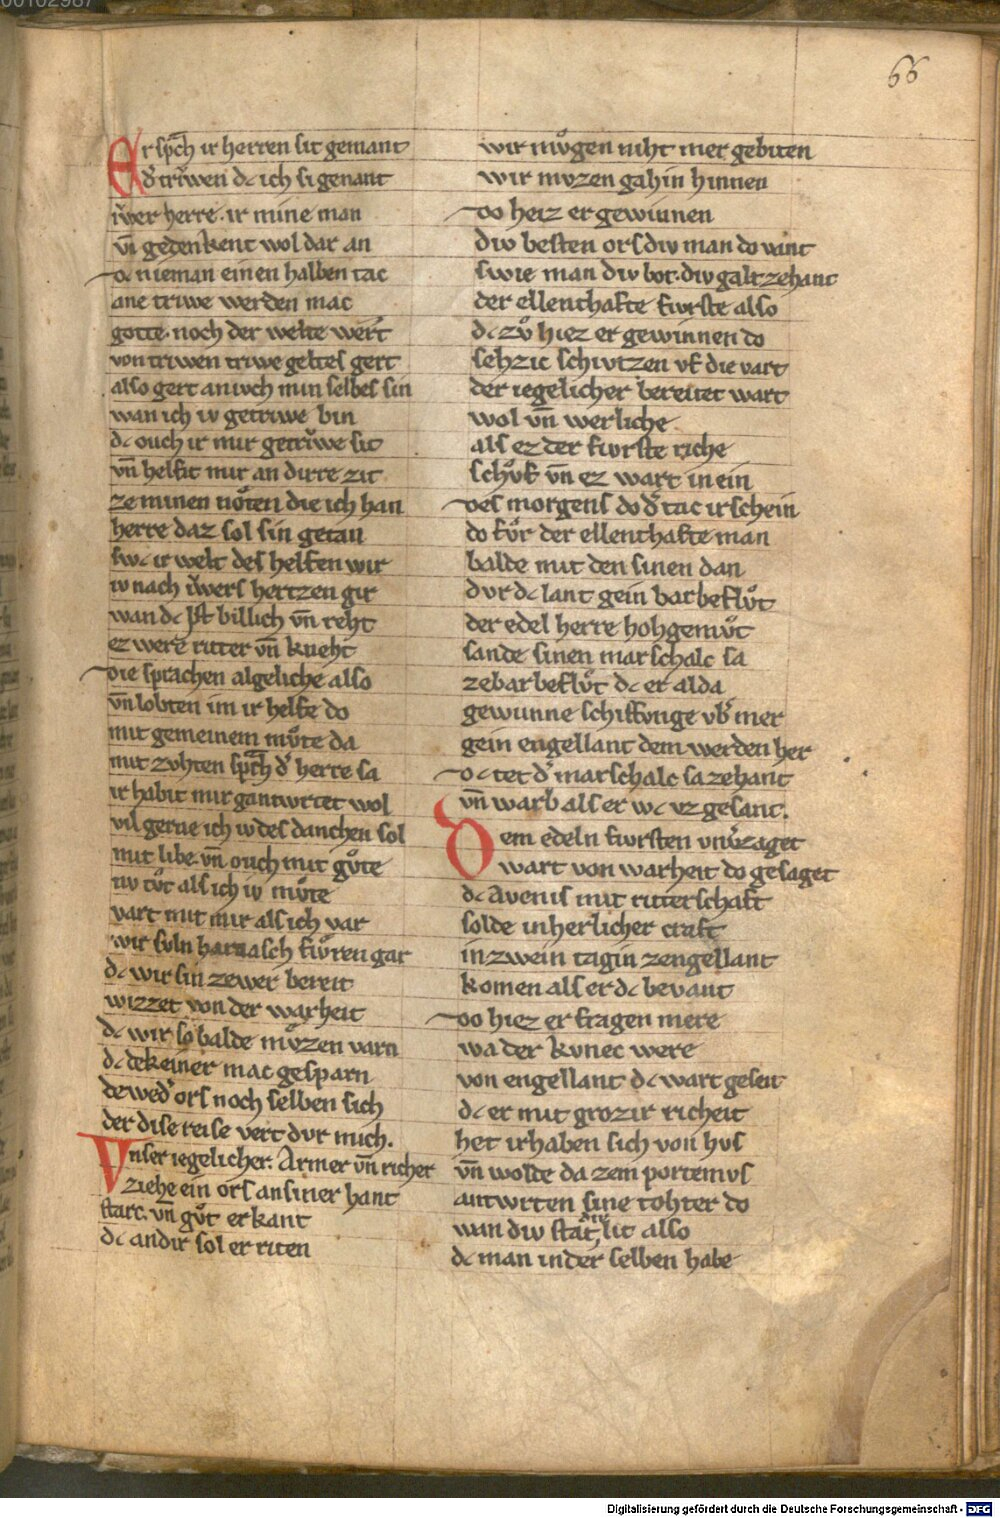 00102987
66
Er sp̄ch ir herren sit gemant
d̕ trv̊wen dc ich si genant
iv̊wer herre. ir mine man
vn̄ gedenkent wol dar an
Dc nieman einen halben tac
ane triwe werden mac
gotte. noch der welte wert
von triwen triwe geltes gert
also gert an iuch min selbes sin
wan ich iv getriwe bin
dc ouch ir mir getriwe sit
vn̄ helfit mir an dirre zit
ze minen nöten die ich han
herre daz sol sin getan
swc ir welt des helfen wir
iv nach iv̊wers hertzen gir
wan dc ist billich vn̄ reht
ez were ritter vn̄ kneht
Die sprachen algeliche also
vn̄ lobten im ir helfe do
mit gemeinem mv̊te da
mit zvhten sp̄ch d̕ herre sa
ir habit mir gantwrtet wol
vil gerne ich iv des danchen sol
mit libe. vn̄ ouch mit gv̊te
nv tv̊t als ich iv mv̊te
vart mit mir als ich var
wir svln harnasch fv̊ren gar
dc wir sin zewer bereit
wizzet von der warheit
dc wir so balde mv̊zen varn
dc dekeiner mac gesparn
dewed̕ ors noch selben sich
der dise reise vert dvr mich.
Vnser iegelicher. Armer vn̄ richer
ziehe ein ors an siner hant
starc. vn̄ gv̊t erkant
dc andir sol er riten
wir mv̊gen niht mer gebiten
wir mvzen gahin hinnen
Do heiz er gewinnen
div besten ors div man do vint
swie man div bot. div galt zehant
der ellenthafte furste also
dc zv̊ hiez er gewinnen do
sehzic schvtzen vf die vart
der iegelicher bereitet wart
wol vn̄ werliche
als ez der furste riche
schv̊f vn̄ ez wart in ein
Des morgens do d̕ tac irschein
do fv̊r der ellenthafte man
balde mit den sinen dan
dvr dc lant gein barbeflv̊t
der edel herre hohgemv̊t
sande sinen marschalc sa
zebarbeflv̊t dc er alda
gewunne schiffvnge vb̕ mer
gein engellant dem werden her
Dc tet d̕ marschalc sa zehant
vn̄ warb als er wc vz gesant.
Dem edeln fursten vnv̕zaget
wart von warheit do gesaget
dc Avenis mit ritterschaft
solde in herlicher craft
in zwein tagin zengellant
komen als er dc bevant
Do hiez er fragen mere
wa der kvnec were
von engellant dc wart geseit
dc er mit grozir richeit
het irhaben sich von hvs
vn̄ wolde da zem portemvs
antwrten sine tohter do
wan div stat lit also
dc man in der selben habe
Digitalisierung gefördert durch die Deutsche Forschungsgemeinschaft - DFG